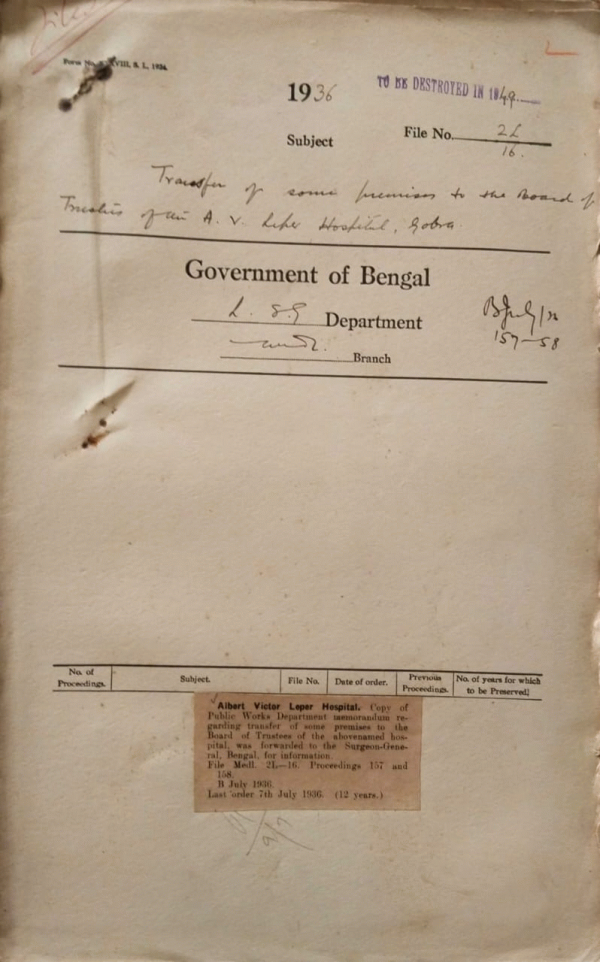 Form No. XVIII, S. L., 1934.
1936
TO BE DESTROYED IN 1949
Subject
File No. 2L
16.
Transfer of some premises to the Board of
Trustees of the A. V. Leper Hospital, Gobra.
Government of Bengal
L. S. G Department
Medl. Branch
B July/36
157-58
No. of Proceedings.
Subject.
File No.
Date of order.
Previous Proceedings.
No. of years for which to be Preserved.
Albert Victor Leper Hospital. Copy of
Public Works Department memorandum re-
garding transfer of some premises to the
Board of Trustees of the abovenamed hos-
pital, was forwarded to the Surgeon-Gene-
ral, Bengal, for information.
File Medl. 2L—16. Proceedings 157 and
158.
B July 1936.
Last order 7th July 1936. (12 years.)